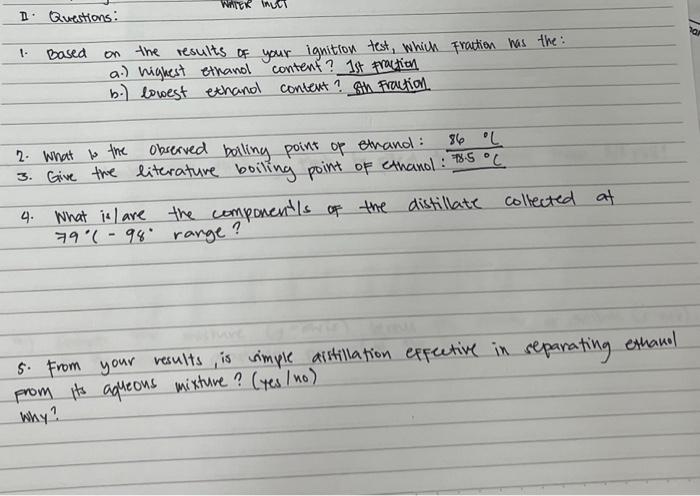 WATER INLET
II. Questions:
1. Based on the results of your ignition test, which Fraction has the:
a.) highest ethanol content? 1st Fraction
b.) lowest ethanol content? 8th Fraction
2. What is the observed boiling point of ethanol: 86 °C
3. Give the literature boiling point of ethanol: 78.5 °C
4. What is/are the component/s of the distillate collected at
79°C - 98° range?
5. From your results, is simple distillation effective in separating ethanol
from its aqueous mixture? (yes/no)
Why?